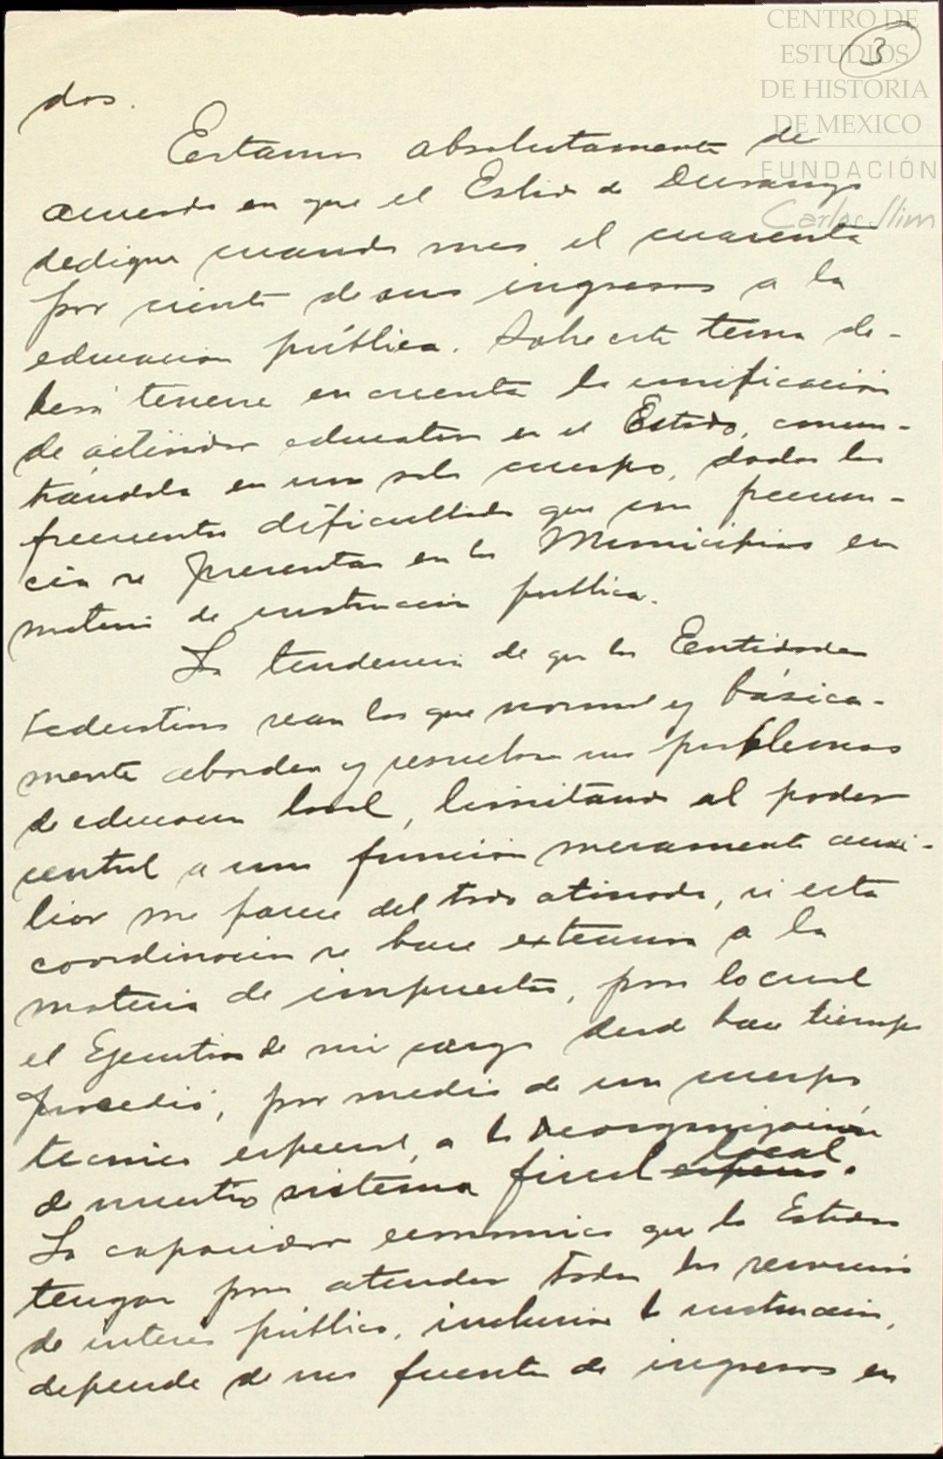 CENTRO DE
ESTUDIOS
DE HISTORIA
DE MEXICO
FUNDACIÓN
Carlos Slim
3
dos.
Estamos absolutamente de
acuerdo en que el Estado de Durango
dedique cuando mas el cuarenta
por ciento de sus ingresos a la
educación pública. Sobre este tema de-
berá tenerse en cuenta la unificación
de actividades educativas en el Estado, concen-
trándola en un solo cuerpo, dadas las
frecuentes dificultades que con frecuen-
cia se presentan en los Municipios en
materia de instrucción publica.
La tendencia de que las Entidades
Federativas sean las que normal y básica-
mente aborden y resuelvan sus problemas
de educación local, limitando al poder
central a una función meramente auxi-
liar me parece del todo atinada, si esta
coordinación se hace extensiva a la
materia de impuestos, para lo cual
el Ejecutivo de mi cargo desde hace tiempo
procedió, por medio de un cuerpo
tecnico especial, a la reorganización
de nuestro sistema fiscal local.
La capacidad economica que los Estados
tengan para atender todos los servicios
de interés público, inclusive la instrucción,
depende de sus fuentes de ingresos en